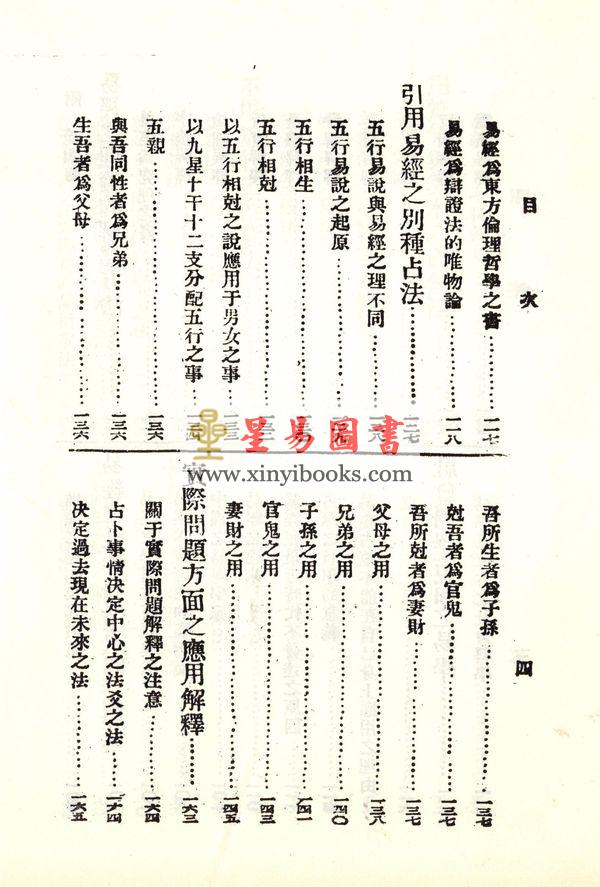 目次
四
易經爲東方倫理哲學之書…………一一七
易經爲辯證法的唯物論…………一一八
引用易經之別種占法…………
五行易說與易經之理不同…………
五行易說之起原…………
五行相生…………
五行相尅…………
以五行相尅之說應用于男女之事…………
以九星十干十二支分配五行之事…………
五親…………一三六
與吾同性者爲兄弟…………一三六
生吾者爲父母…………一三六
吾所生者爲子孫…………一三七
尅吾者爲官鬼…………一三七
吾所尅者爲妻財…………一三七
父母之用…………一三八
兄弟之用…………一四〇
子孫之用…………一四一
官鬼之用…………一四三
妻財之用…………一四五
實際問題方面之應用解釋…………一六三
關于實際問題解釋之注意…………一六四
占卜事情决定中心之法爻之法…………一六四
决定過去現在未來之法…………一六五
星易圖書
www.xinyibooks.com